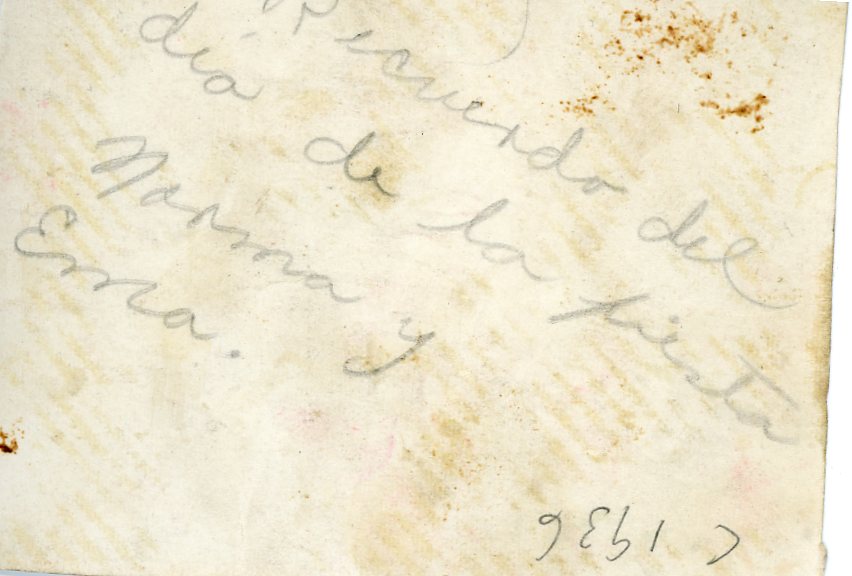 Recuerdo del
día de la fiesta
Norma y
Emma.
c 1936